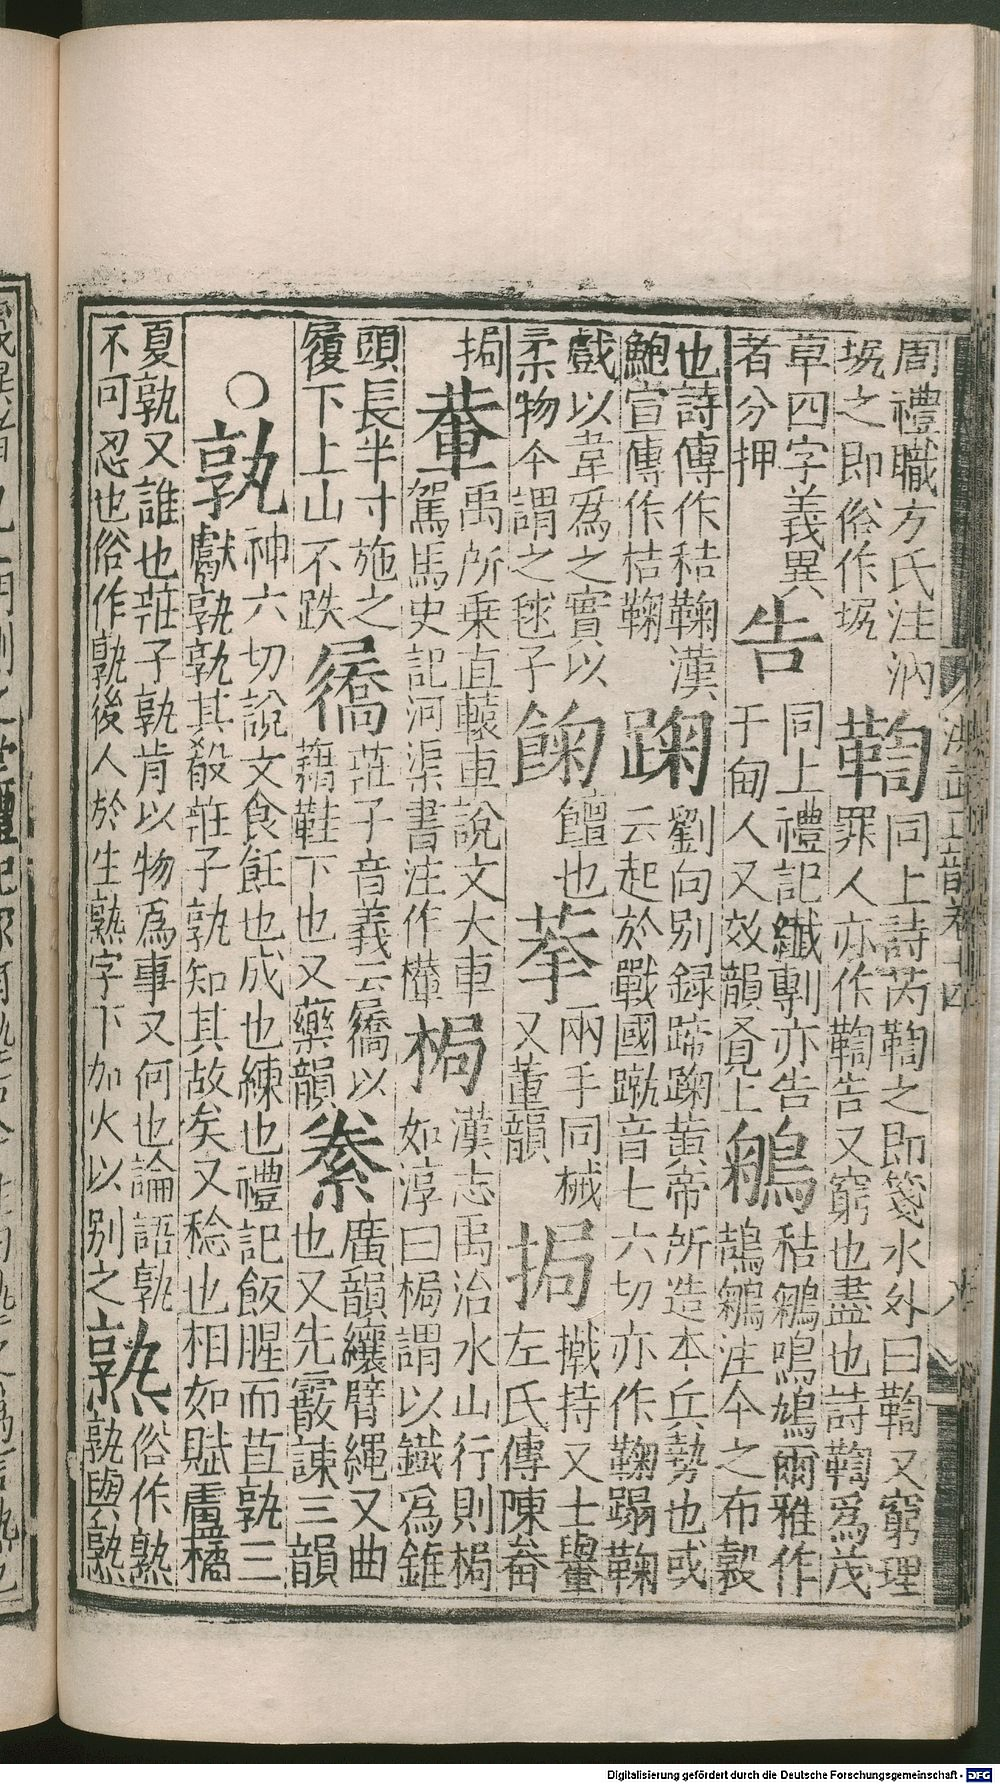 周禮職方氏注汭
㘲之即俗作㘲
鞫
同上詩芮鞫之即箋水外曰鞫又窮理
罪人亦作鞫告又窮也盡也詩鞫爲茂
草四字義異
者分押
告
同上禮記纎剸亦告
于甸人又效韻見上
鵴
秸鵴鳴鳩爾雅作
鴶鵴注今之布糓
也詩傳作秸鞠漢
鮑宣傳作桔鞠
踘
劉向别録蹄踘黄帝所造本兵勢也或
云起於戰國蹴音七六切亦作鞠蹋鞠
戲以韋爲之實以
柔物今謂之毬子
䬺
饘也
拲
兩手同械
又董韻
挶
㦸持又士轝
左氏傳陳畚
挶
輂
禹所乗直轅車說文大車
駕馬史記河渠書注作檋
梮
漢志禹治水山行則梮
如淳曰梮謂以鐵爲錐
頭長半寸施之
履下上山不跌
屩
莊子音義云屩以
藉鞋下也又藥韻
絭
廣韻纕臂繩又曲
也又先霰諫三韻
○孰
神六切說文食飪也成也練也禮記飯腥而苴孰三
獻孰孰其殽莊子孰知其故矣又稔也相如賦盧橘
夏孰又誰也莊子孰肯以物爲事又何也論語孰
不可忍也俗作孰後人於生熟字下加火以别之
熟
俗作熟
孰與熟
洪武正韻卷十四
Digitalisierung gefördert durch die Deutsche Forschungsgemeinschaft - DFG